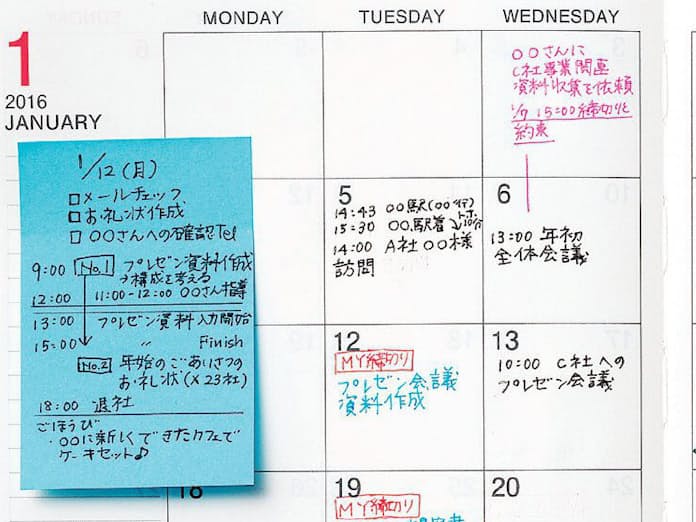 MONDAY
TUESDAY
WEDNESDAY
1
2016
JANUARY
1/12(月)
□メールチェック
□お礼状作成
□〇〇さんへの確認Tel
9:00 No.1 プレゼン資料作成
→構成を考える
12:00 11:00-12:00 〇〇さん指導
13:00 プレゼン資料入力開始
15:00 〃 Finish
No.2 年始のごあいさつの
お礼状(×23社)
18:00 退社
ごほうび
・〇〇に新しくできたカフェで
ケーキセット♪
〇〇さんに
C社事業関連
資料収集を依頼
1/7 15:00締切りと
約束
5
14:43 〇〇駅(〇〇行)
15:30 〇〇駅着
14:00 A社〇〇様
訪問
6
13:00 年初
全体会議
12
MY締切り
プレゼン会議
資料作成
13
10:00 C社への
プレゼン会議
18
19
MY締切り
20